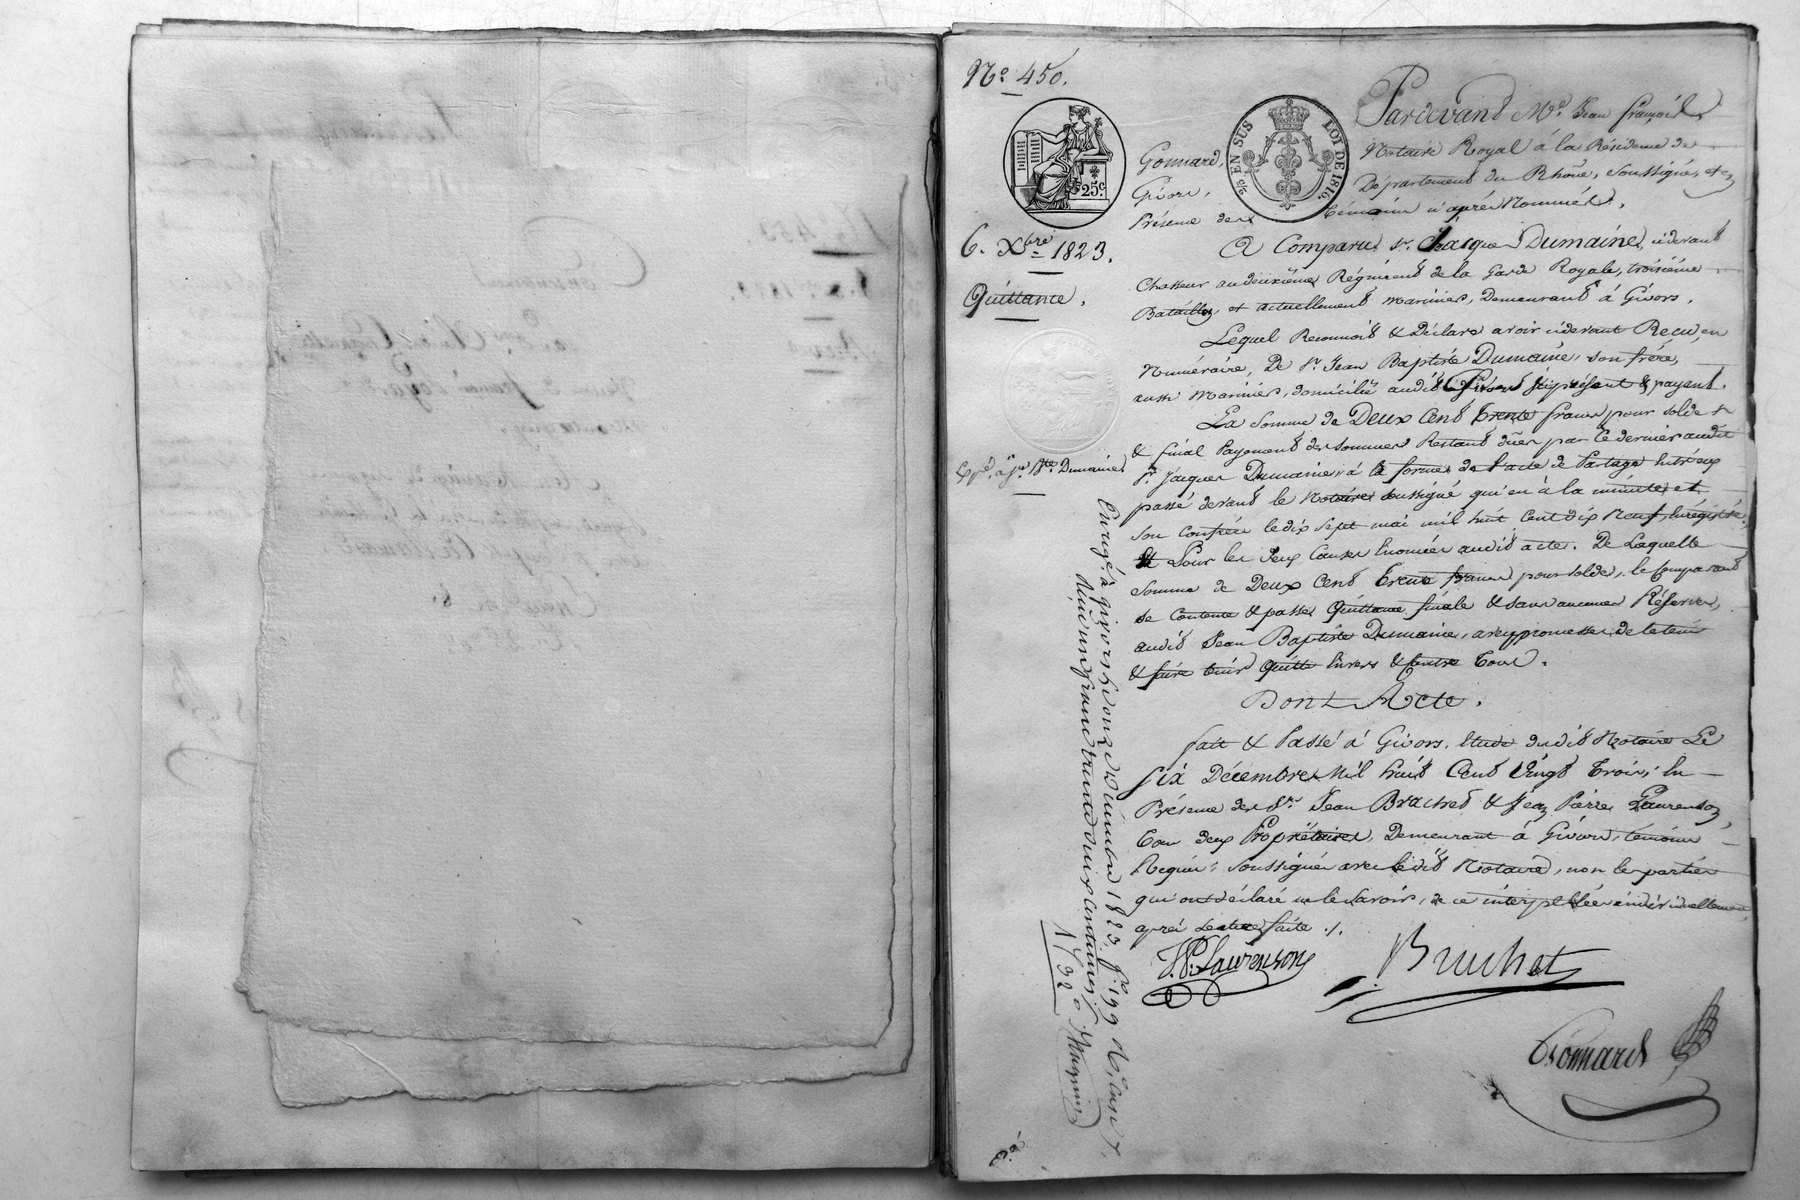 N.° 450.
25 c.
2/5 EN SUS
LOI DE 1816.
6. Xbre 1823.
Quittance.
Expéd. à Jn. Bte. Dumaine
Pardevant Me. Jean françois
Gonnard, Notaire Royal à la Résidence de
Givors, Département du Rhône, soussigné, et en
Présence des témoins ci après Nommés.
A Comparu sr. Jacques Dumaine, cidevant
Chasseur au deuxième Régiment de la Garde Royale, troisième
Bataillon, et actuellement marinier, Demeurant à Givors.
Lequel Reconnoit & Déclare avoir cidevant Recu, en
Numéraire, De sr. Jean Baptiste Dumaine, son frère,
aussi marinier, domicilié audit Givors, ici présent & payant.
La Somme de Deux Cent trente francs pour solde
& final Payement des sommes Restant dües par le dernier audit
sr. Jacques Dumaine, à la forme de l'acte de Partage Entr'eux
passé devant le Notaire soussigné qui en à la minute, et
son confrère le dix sept mai mil huit Cent dix Neuf, Enrégistré.
Pour les Jeux Causes Enoncées audit acte. De Laquelle
somme de Deux Cent trente francs pour solde, le Comparant
se Contente & passe Quittance finale & sans aucunes Réserves,
audit Jean Baptiste Dumaine, avec promesse de le tenir
& faire tenir Quitte Envers & Contre Tous.
Dont Acte.
fait & Passé à Givors, Etude dudit Notaire Le
six Décembre Mil huit Cent Vingt Trois; En
Présence des Srs. Jean Brachet & Jean Pierre Laurenson,
Tous deux Propriétaires, Demeurant à Givors, témoins
Requis; soussignés avec ledit Notaire, non les parties
qui ont déclaré ne le savoir, de ce interpellées individuellement
après Lecture faite ./.
J.P. Laurenson
Bruchet
Gonnard
Enregé. à givors le onze décembre 1823, f° 199 Rc. Case
Reçu un franc trente deux centimes.
1 f 32 c